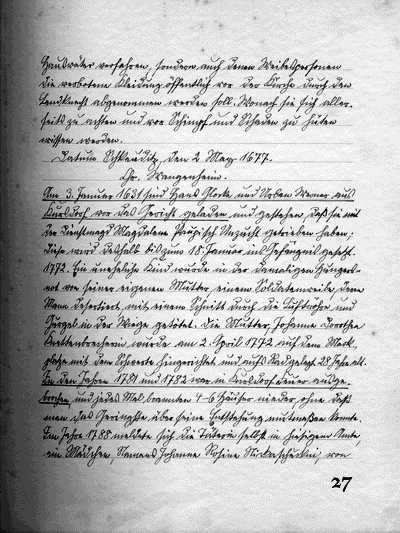 Hausväter verfahren, sondern auch denen Weibespersonen
die verbotene Kleidung öffentlich vor der Kirche durch den
Landknecht abgenommen werden soll. Wonach sie sich aller-
seits zu achten und vor Schimpf und Schaden zu hüten
wissen werden.
Datum Schkeuditz, den 2. May 1677.
Wangenheim.
Am 3. Januar 1631 sind Hans Glocke und Urban Werner aus
Kursdorf vor das Gericht geladen und gestehen, daß sie mit
der Dienstmagd Magdalene Unzucht getrieben haben;
diese wird deshalb bis zum 18. Januar ins Gefängnis gesetzt.
1772. Ein uneheliche Kind wurde in der damaligen Hungers-
not von seiner eigenen Mutter, einem Soldatenweibe, deren
Mann desertiert, mit einem Schnitt durch die Luftröhre und
Gurgel in der Wiege getötet. Die Mutter, Johanna Dorothea
wurde am 2. April 1772 auf dem Markt-
platze mit dem Schwerte hingerichtet und aufs Rad gelegt. 28 Jahre alt.
In den Jahren 1781 und 1782 war in Kursdorf Feuer ausge-
brochen und jedes Mal brannten 1-6 Häuser nieder, ohne daß
man das Geringste über seine Entstehung mutmaßen konnte.
Im Jahre 1788 meldete sich die Täterin selbst in hiesigem Amte
ein Mädchen, Namens Johanne Rosine von
27